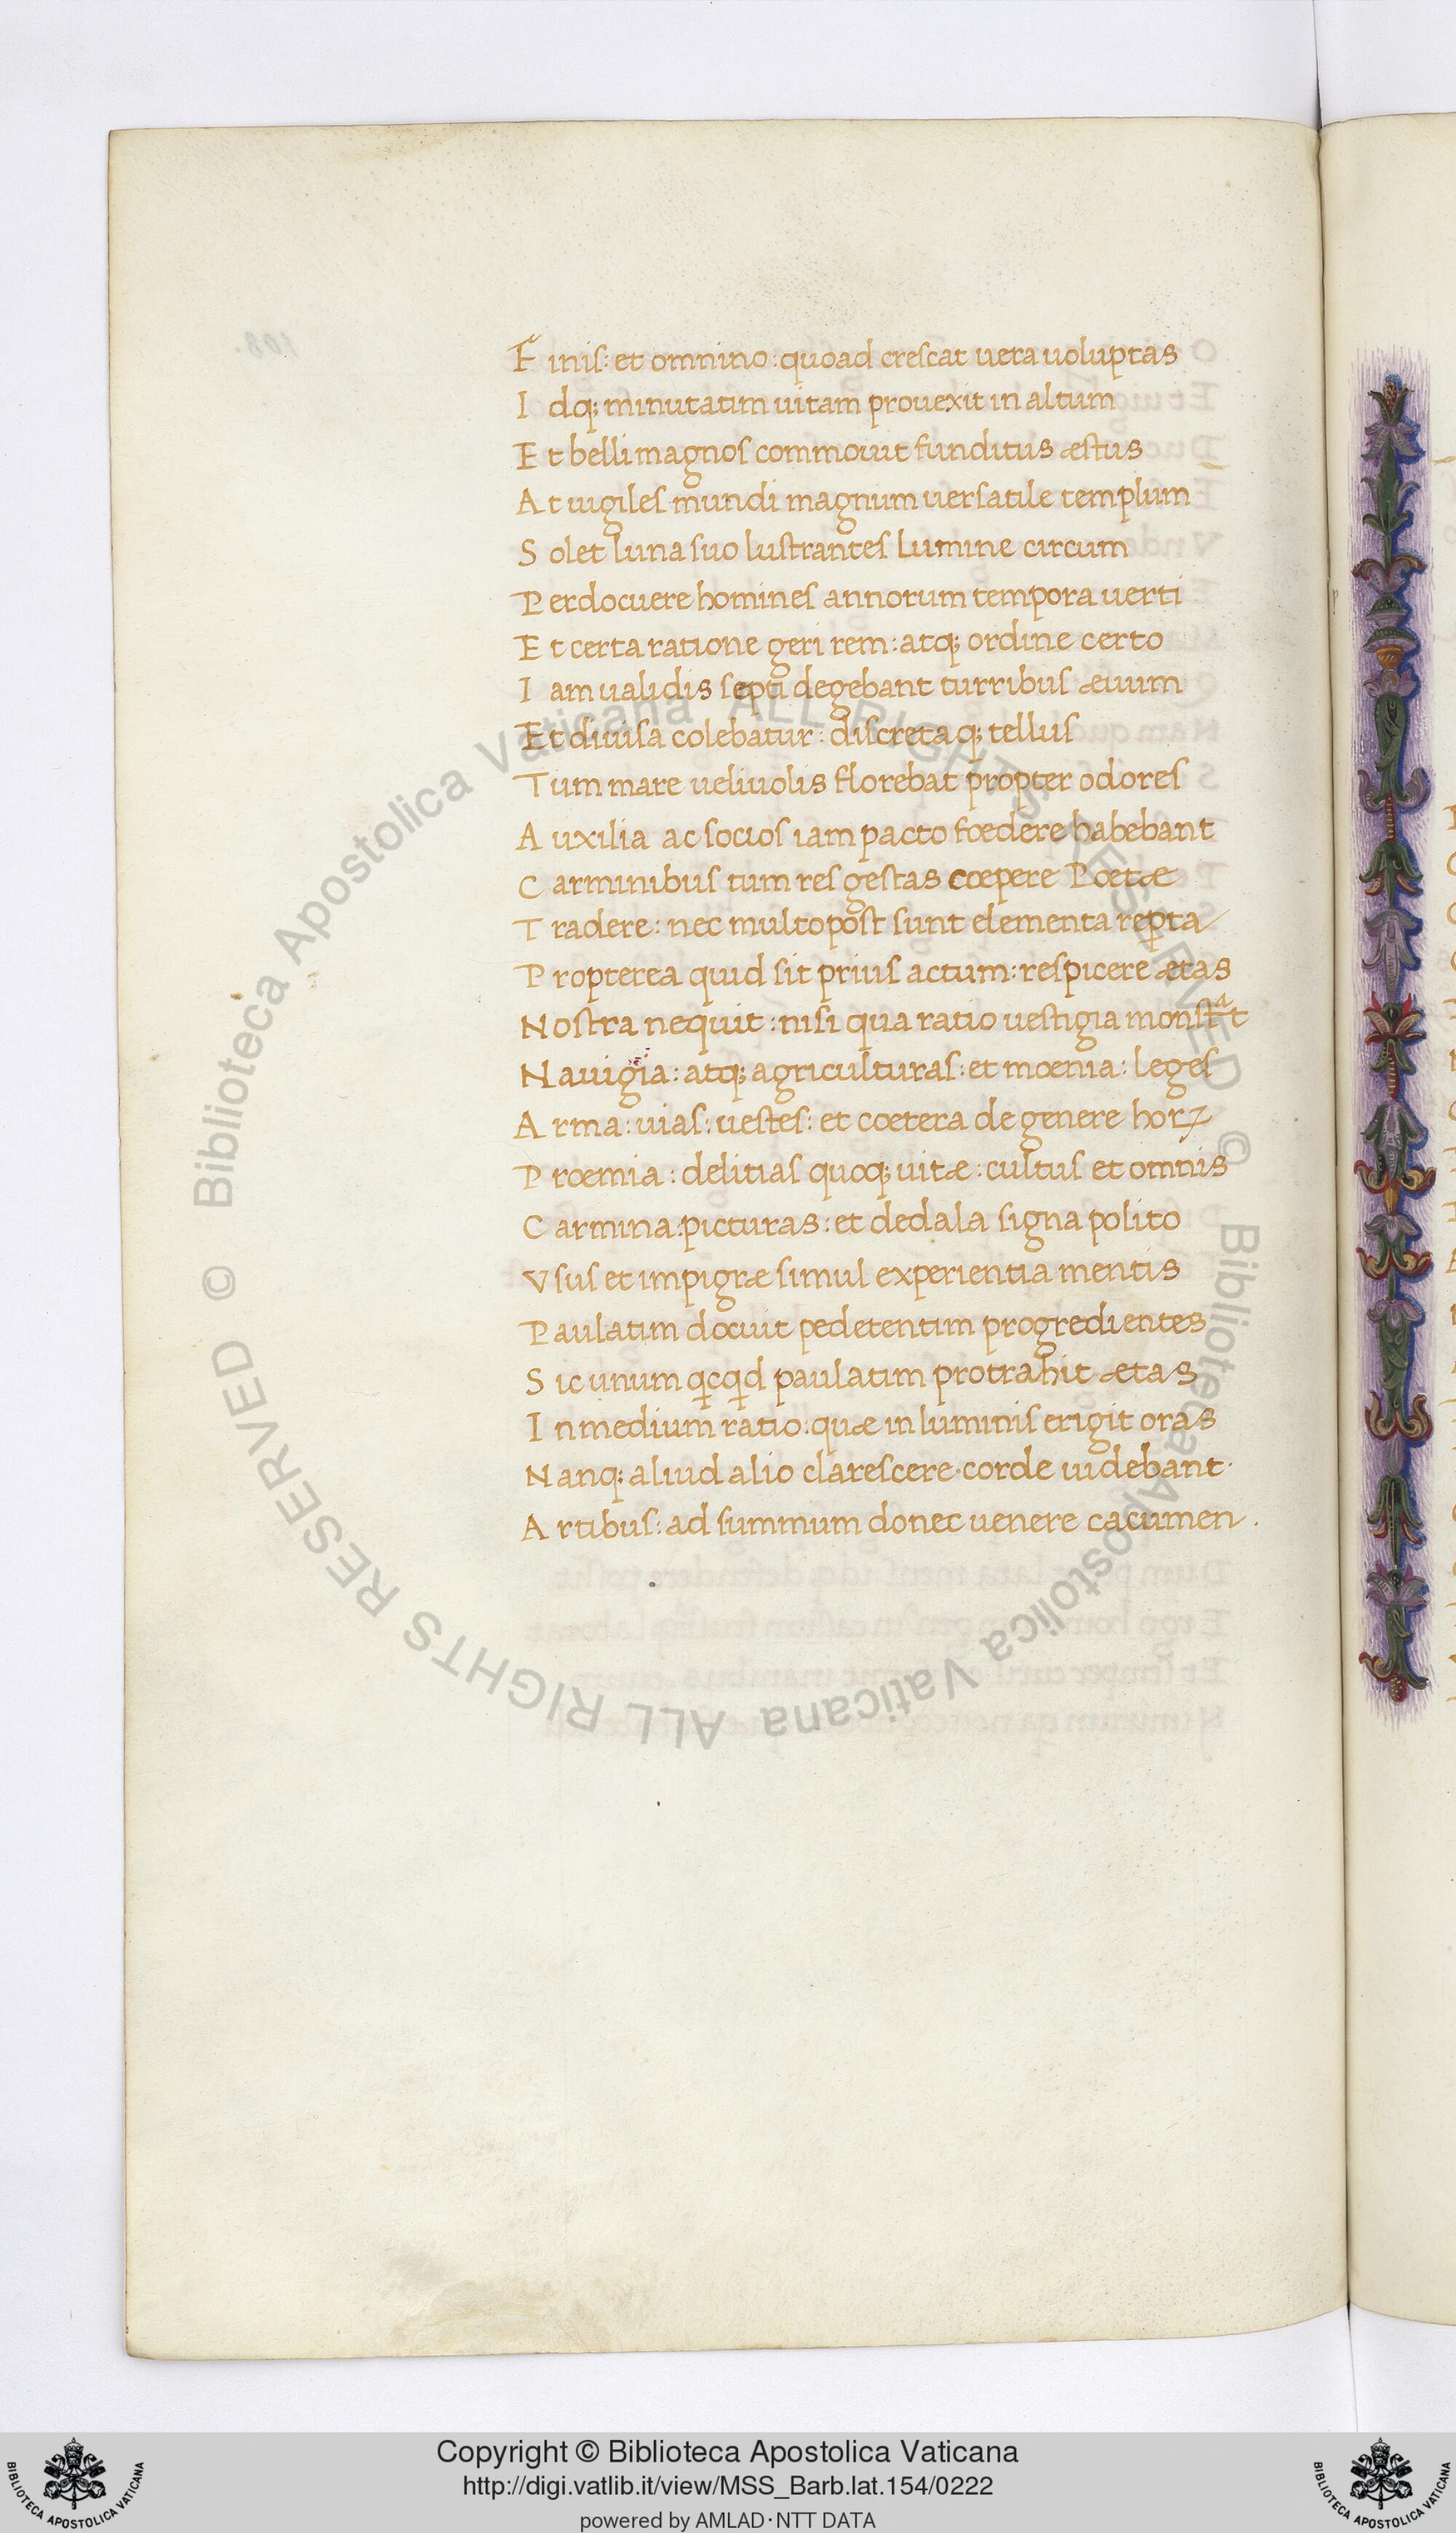 Finis: et omnino: quoad crescat uera uoluptas
Idq; minutatim uitam prouexit in altum
Et belli magnos commouit funditus æstus
At uigiles mundi magnum uersatile templum
Solet luna suo lustrantes lumine circum
Perdocuere homines annorum tempora uerti
Et certa ratione geri rem: atq; ordine certo
Iam ualidis septi degebant turribus æuum
Et diuisa colebatur: discretaq; tellus
Tum mare ueliuolis florebat propter odores
Auxilia ac socios iam pacto foedere habebant
Carminibus tum res gestas coepere Poetæ
Tradere: nec multopost sunt elementa repta
Propterea quid sit prius actum: respicere ætas
Nostra nequit: nisi qua ratio uestigia monstrᵃt
Nauigia: atq; agriculturas: et moenia: leges
Arma: uias: uestes: et coetera de genere horꝝ
Proemia: delitias quoq; uitæ: cultus et omnis
Carmina: picturas: et dedala signa polito
Vsus et impigræ simul experientia mentis
Paulatim docuit pedetentim progredientes
Sic unum qcqd paulatim protrahit ætas
In medium ratio: quæ in luminis erigit oras
Nanq: aliud alio clarescere· corde uidebant·
Artibus: ad summum donec uenere cacumen.
© Biblioteca Apostolica Vaticana ALL RIGHTS RESERVED
© Biblioteca Apostolica Vaticana ALL RIGHTS RESERVED
Copyright © Biblioteca Apostolica Vaticana
http://digi.vatlib.it/view/MSS_Barb.lat.154/0222
powered by AMLAD·NTT DATA
BIBLIOTECA APOSTOLICA VATICANA
BIBLIOTECA APOSTOLICA VATICANA